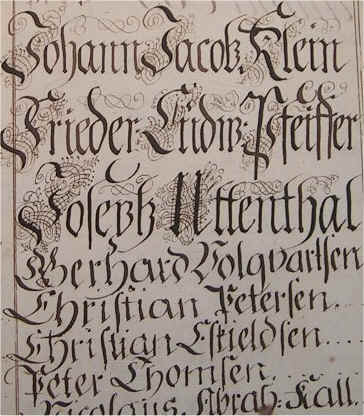 Johann Jacob Klein
Frieder: Ludw: Pfeiffer
Joseph Uttenthal
Gerhard Volqvartsen
Christian Petersen...
Christian Eskieldsen....
Peter Thomsen
Nicolaus. Abrah: Kall.